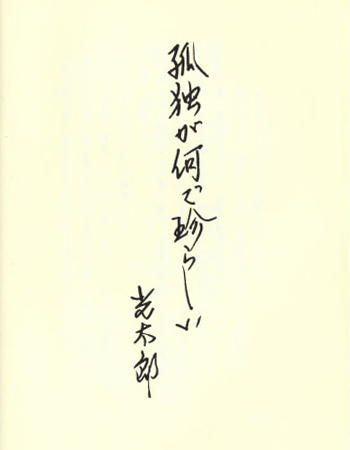 孤独が何で珍らしい
光太郎